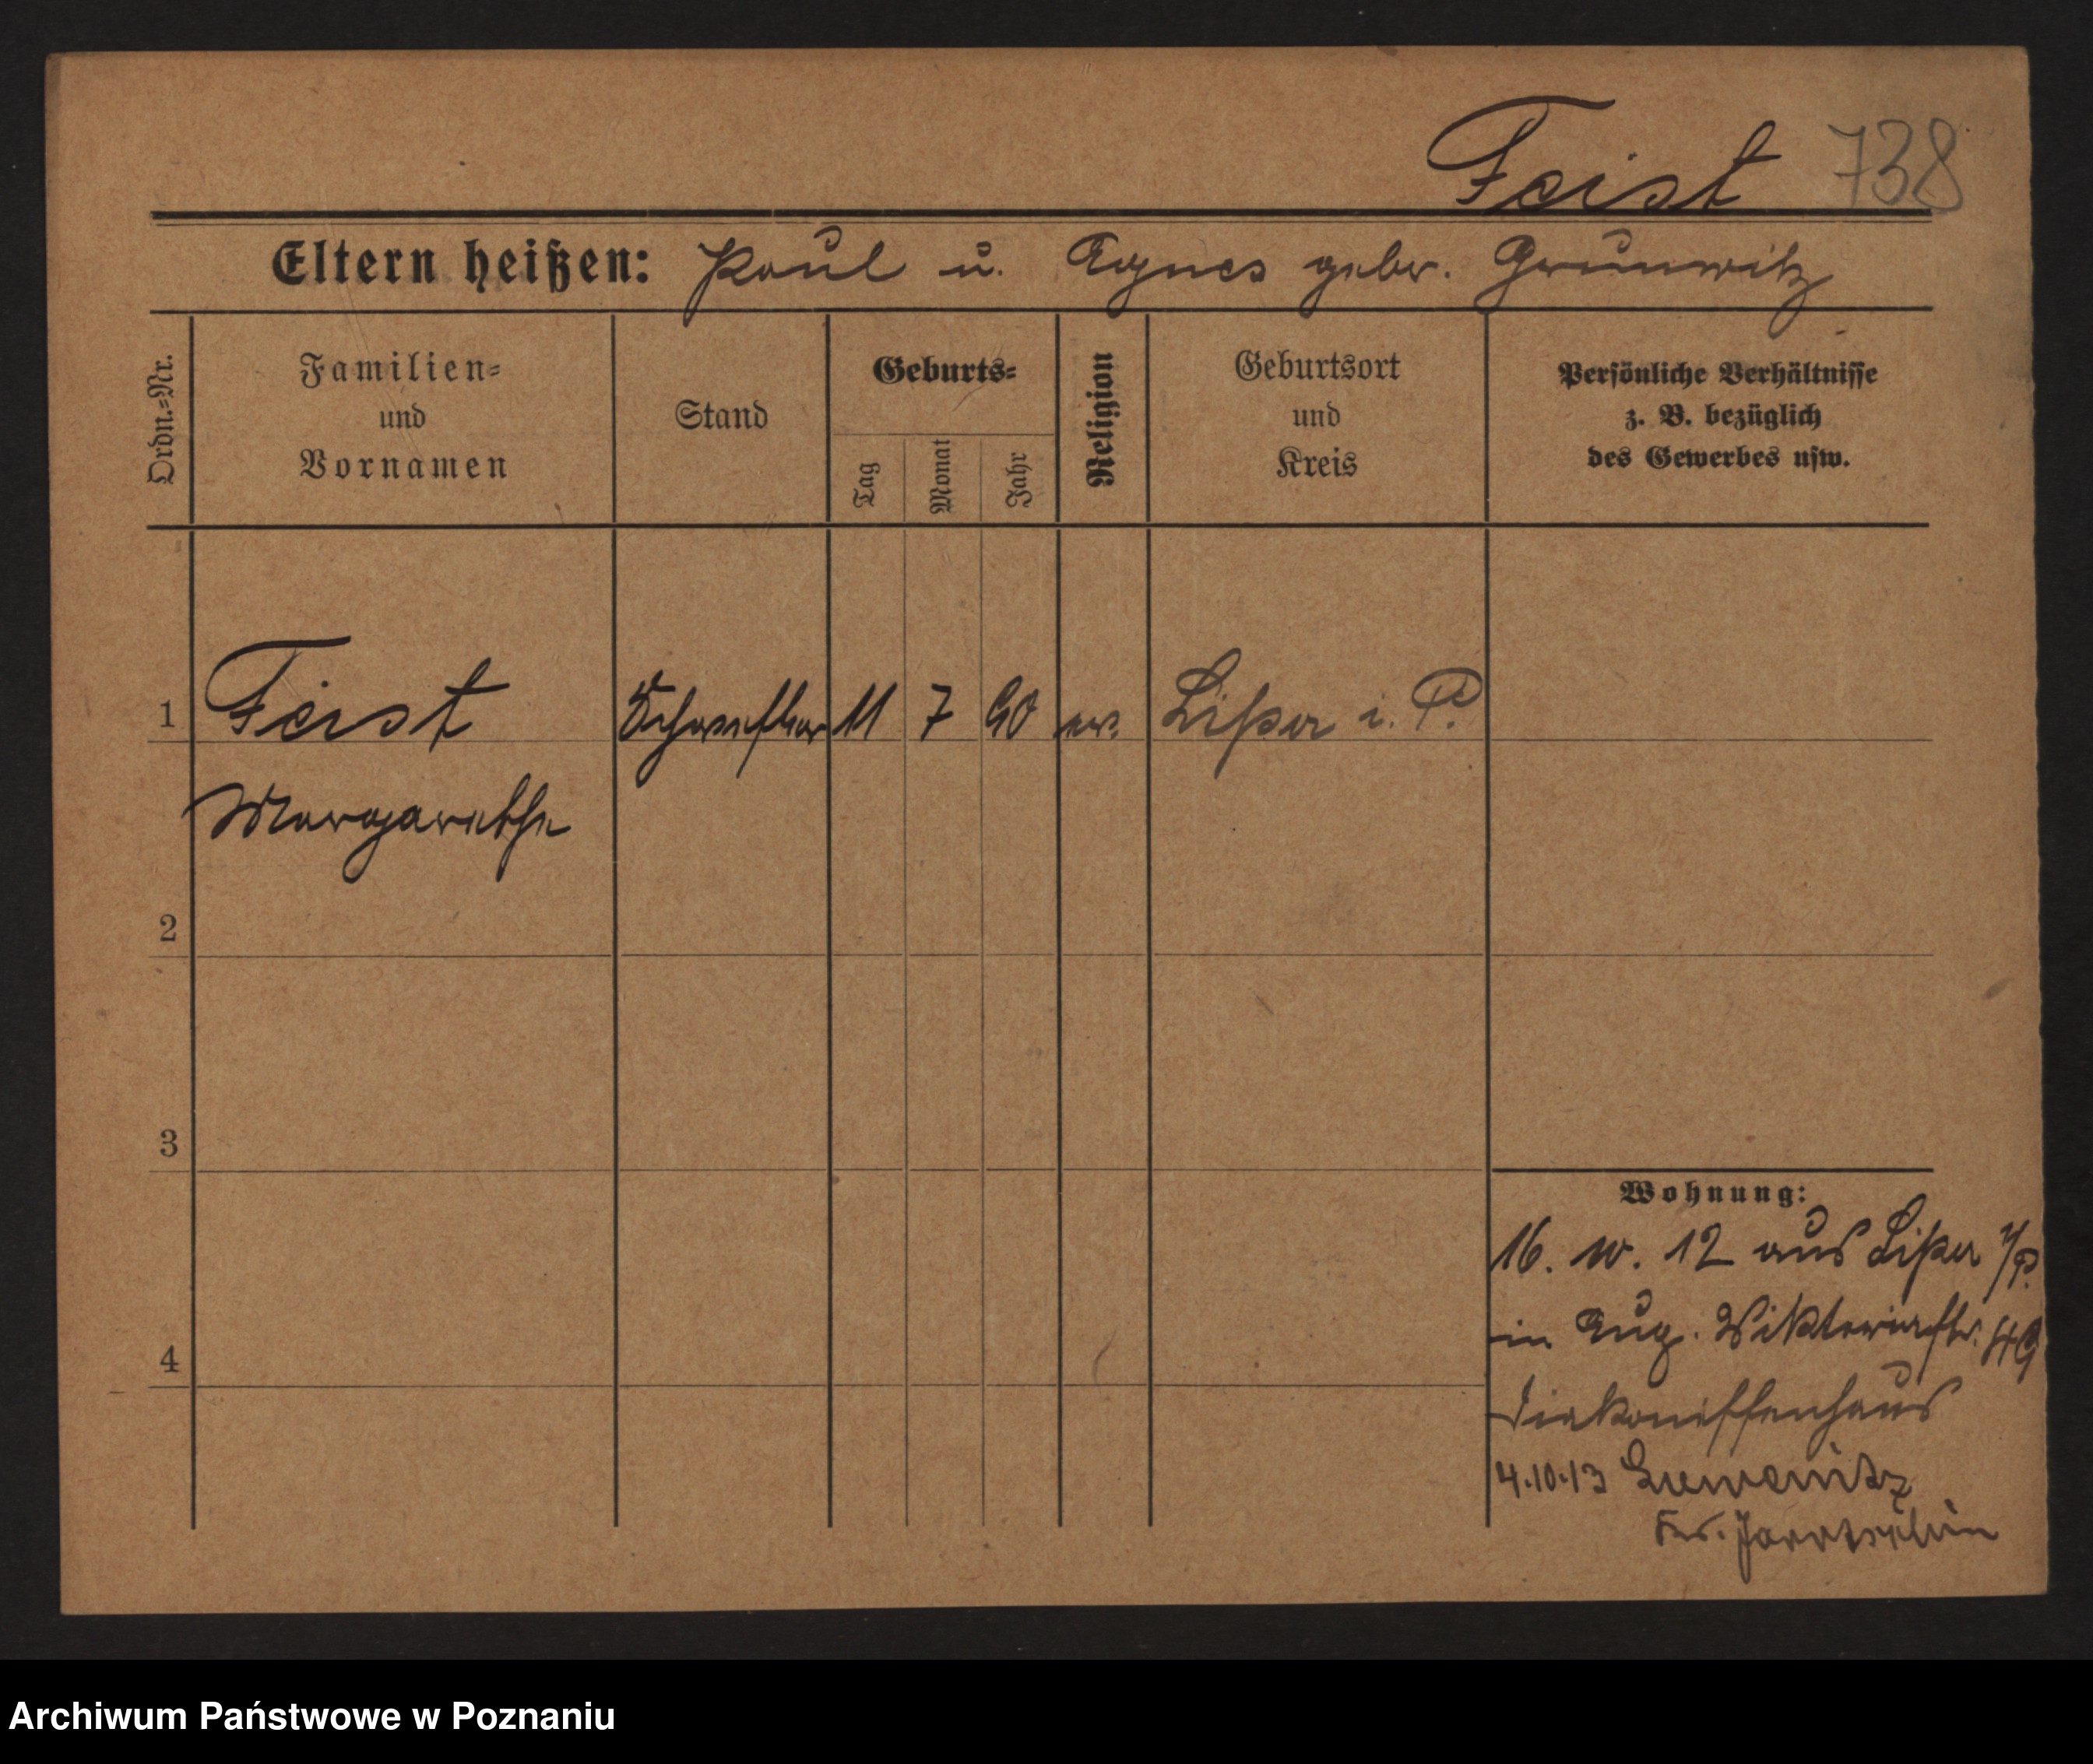 Feist 738
Eltern heißen: Paul u. Agnes gebor. Grunwitz
Ordn.=Nr.
Familien=
und
Vornamen
Stand
Geburts=
Tag
Monat
Jahr
Religion
Geburtsort
und
Kreis
Persönliche Verhältnisse
z. B. bezüglich
des Gewerbes usw.
1 Feist Schwester 11 7 90 ev. Lissa i. P.
Margarethe
2
3
4
Wohnung:
16. 10. 12 aus Lissa i/P.
in Aug. Viktoriastr. 49
Diakonissenhaus
4.10.13
Krs. Jarotschin
Archiwum Państwowe w Poznaniu